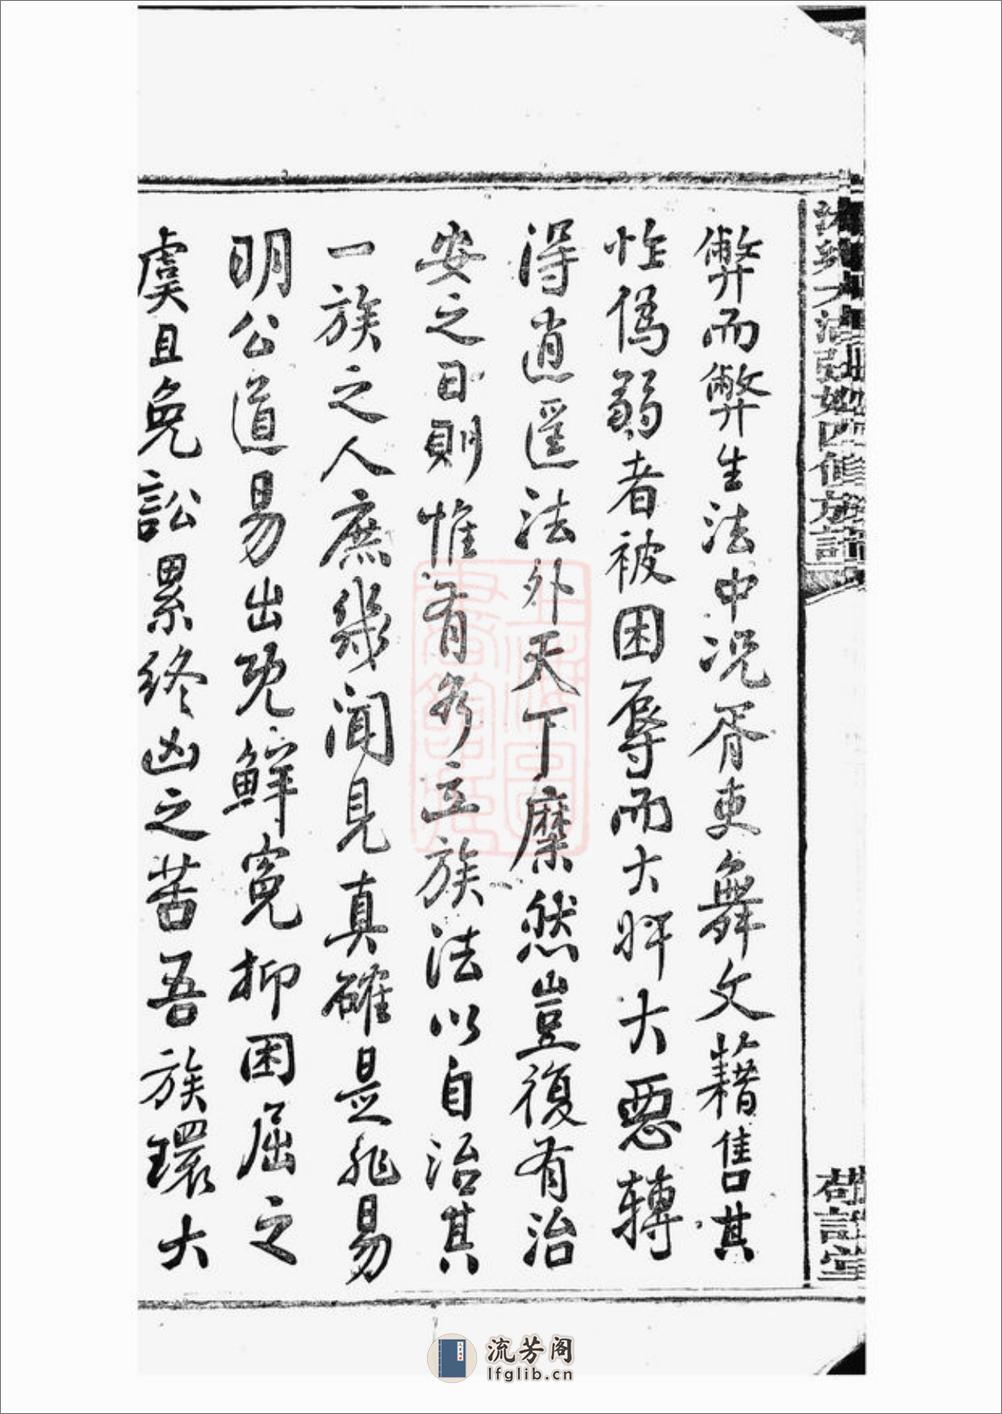 弊而弊生法中况胥吏舞文藉售其
性偽弱者被困辱而大奸大惡轉
得逍遥法外天下糜然豈復有治
安之日則惟有另立族法以自治其
一族之人庶幾聞見真確是非易
明公道易出既鮮寃抑困屈之
虞且免訟累終凶之苦吾族環大
四修族譜
流芳阁
lfglib.cn